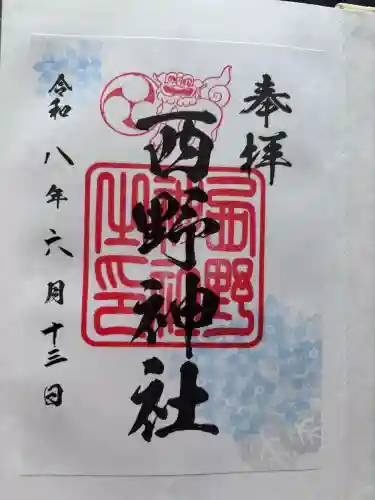 奉拝
西野神社
西野神社之印
令和八年六月十三日